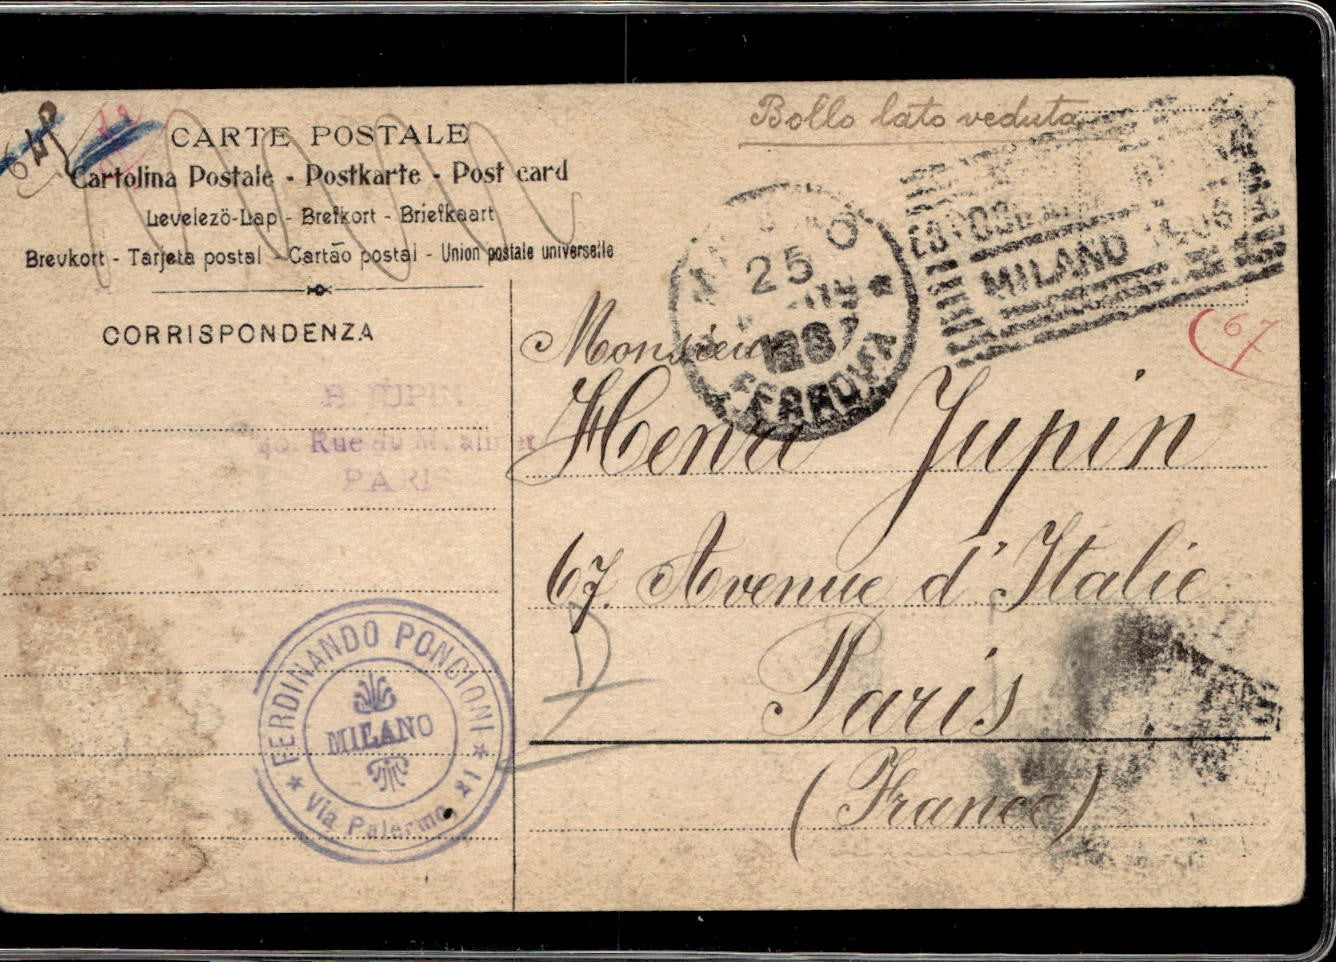 Bollo lato veduta
CARTE POSTALE
Cartolina Postale - Postkarte - Post card
Levelezö-Lap - Brefkort - Briefkaart
Brevkort - Tarjeta postal - Cartão postal - Union postale universelle
CORRISPONDENZA
MILANO
25
FERROVIA
MILANO
67
H. JUPIN
Rue du
PARIS
Monsieur
Henri Jupin
67. Avenue d'Italie
Paris
(France)
FERDINANDO PONCIONI
MILANO
Via Palermo, 21